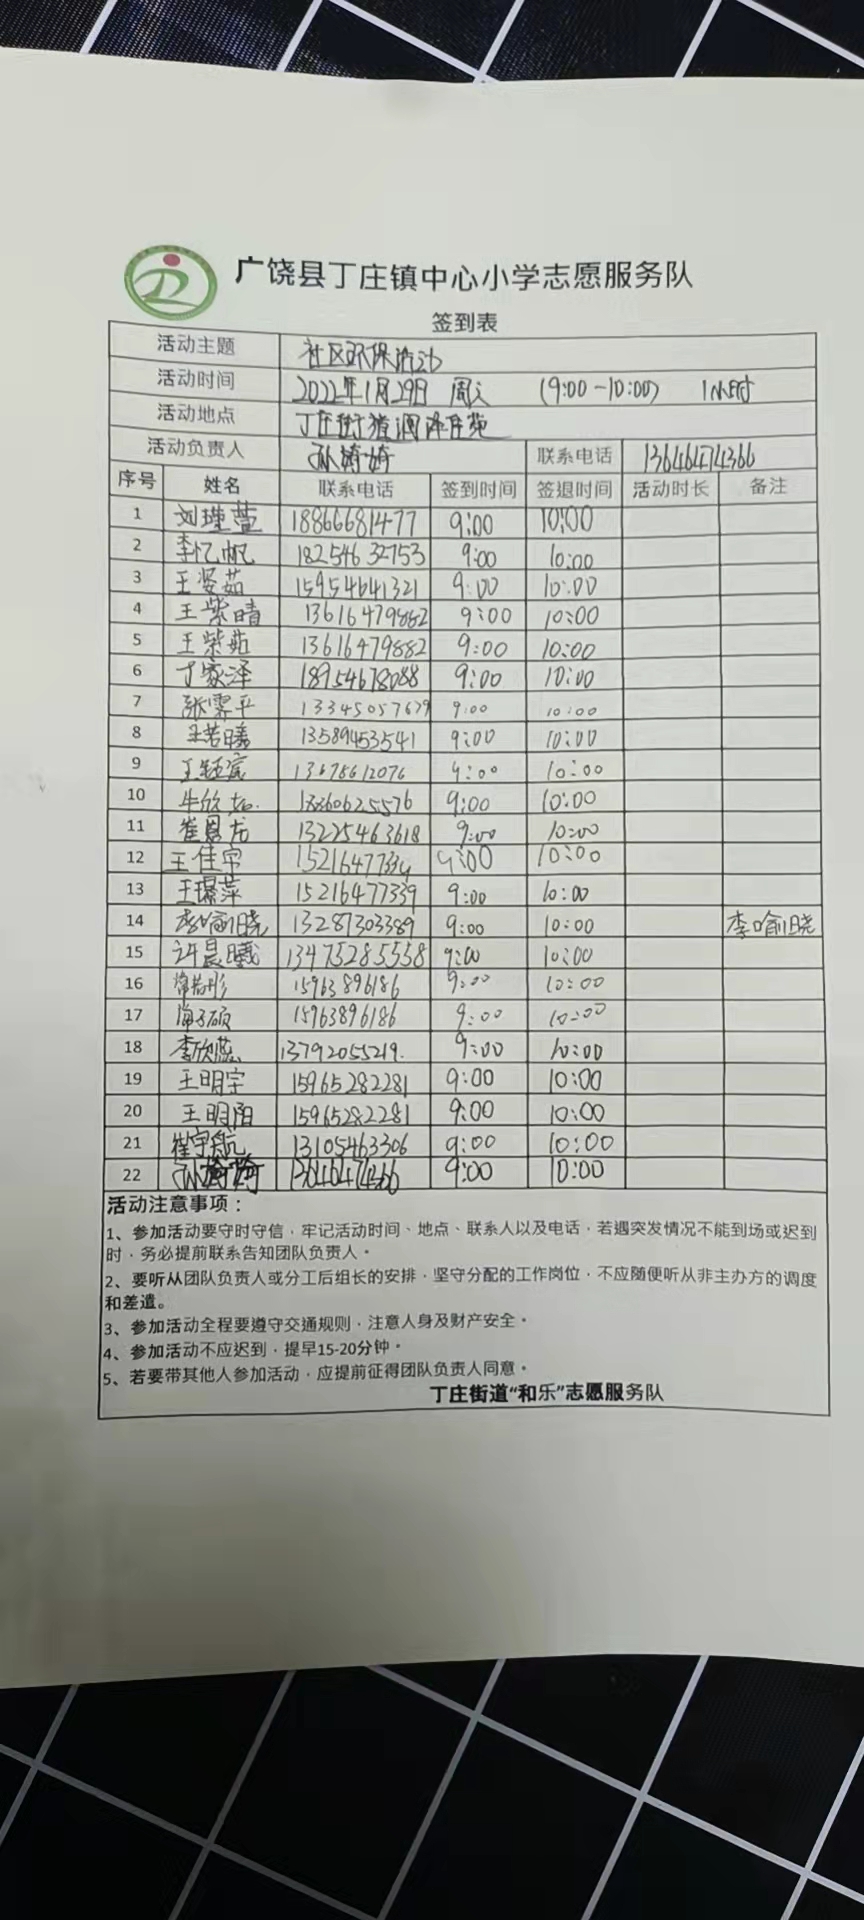 广饶县丁庄镇中心小学志愿服务队
签到表
活动主题 社区环保活动
活动时间 2022年1月29日 周六 (9:00-10:00) 1小时
活动地点 丁庄街道润泽佳苑
活动负责人 孙婍婍 联系电话 13646474366
序号 姓名 联系电话 签到时间 签退时间 活动时长 备注
1 刘瑾萱 18866681477 9:00 10:00
2 李忆帆 18254632753 9:00 10:00
3 王姿茹 15954641321 9:00 10:00
4 王紫晴 13616479882 9:00 10:00
5 王紫茹 13616479882 9:00 10:00
6 丁家泽 18954678088 9:00 10:00
7 张霁平 13345057679 9:00 10:00
8 王若曦 13589453541 9:00 10:00
9 王钰宸 13678612076 9:00 10:00
10 牛欣如. 18360625576 9:00 10:00
11 崔恩龙 13225463618 9:00 10:00
12 王佳宁 15216477339 9:00 10:00
13 王瑞萍 15216477339 9:00 10:00
14 李喻晓 13287303389 9:00 10:00 李喻晓
15 许晨曦 13475285558 9:00 10:00
16 15963896186 9:00 10:00
17 15963896186 9:00 10:00
18 李欣蕊 13792055219. 9:00 10:00
19 王明宇 15965282281 9:00 10:00
20 王明阳 15965282281 9:00 10:00
21 崔宇航 13105463306 9:00 10:00
22 孙婍婍 13646474366 9:00 10:00
活动注意事项：
1、参加活动要守时守信，牢记活动时间、地点、联系人以及电话，若遇突发情况不能到场或迟到
时，务必提前联系告知团队负责人。
2、要听从团队负责人或分工后组长的安排，坚守分配的工作岗位，不应随便听从非主办方的调度
和差遣。
3、参加活动全程要遵守交通规则，注意人身及财产安全。
4、参加活动不应迟到，提早15-20分钟。
5、若要带其他人参加活动，应提前征得团队负责人同意。
丁庄街道“和乐”志愿服务队